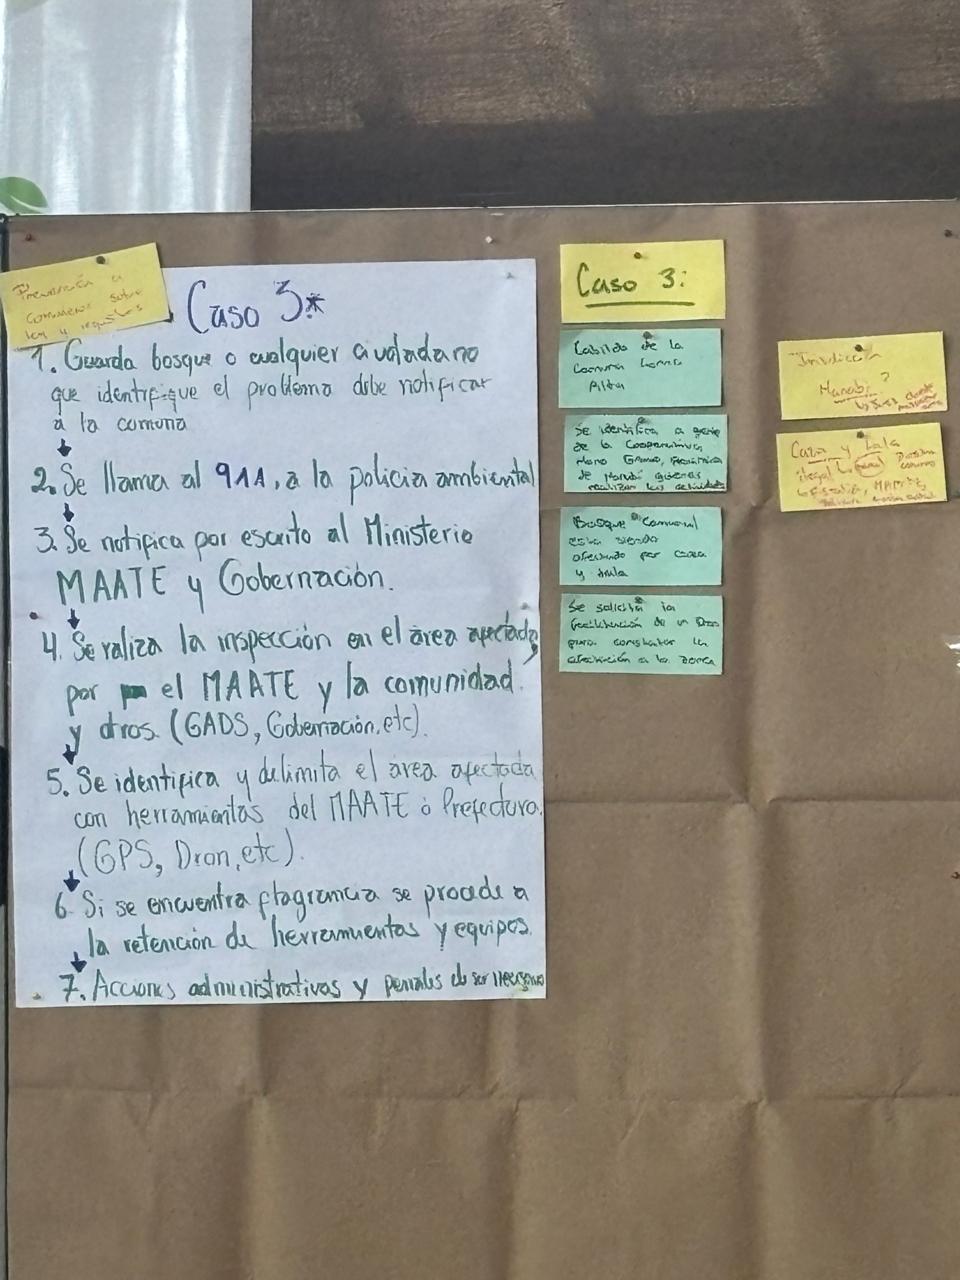 a
comuneros sobre
ley y requisitos
Caso 3*
1. Guarda bosque o cualquier ciudadano
que identifique el problema debe notificar
a la comuna
2. Se llama al 911, a la policía ambiental
3. Se notifica por escrito al Ministerio
MAATE y Gobernación.
4. Se raliza la inspección en el área afectada,
por el MAATE y la comunidad.
y otros. (GADS, Gobernación, etc).
5. Se identifica y delimita el área afectada
con herramientas del MAATE o Prefectura.
(GPS, Dron, etc).
6. Si se encuentra flagrancia se procede a
la retención de herramientas y equipos.
7. Acciones administrativas y penales de ser necesario
Caso 3:
Cabildo de la
Comuna Loma
Alta
Se identifica a gente
de la Cooperativa
Mono Grande,
de Manabí quienes
realizan las actividades
Bosque Comunal
esta siendo
afectado por caza
y tala
Se solicita la
de un Dron
para constatar la
afectación a la zona
Manabí ?
Caza y tala
ilegal